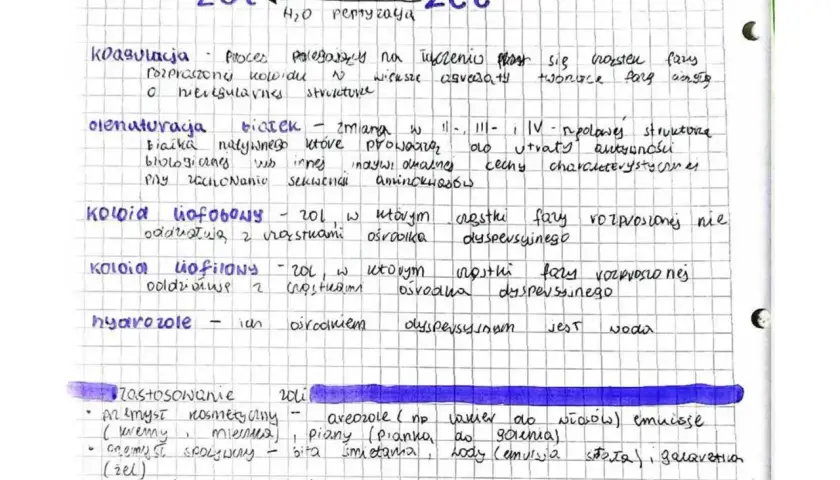 H₂O peptyzacja
koagulacja - proces polegający na łączeniu się cząstek fazy
rozproszonej koloidu w większe agregaty tworzące fazę ciągłą
o nieregularnej strukturze
denaturacja białek - zmiana w II-, III- i IV-rzędowej strukturze
białka natywnego które prowadzą do utraty aktywności
biologicznej lub innej indywidualnej cechy charakterystycznej
przy zachowaniu sekwencji aminokwasów
koloid liofobowy - zol, w którym cząstki fazy rozproszonej nie
oddziałują z cząstkami ośrodka dyspersyjnego
koloid liofilowy - zol, w którym cząstki fazy rozproszonej
oddziałuje z cząstkami ośrodka dyspersyjnego
hydrozole - ich ośrodkiem dyspersyjnym jest woda
zastosowanie zoli
• przemysł kosmetyczny - areozole (np lakier do włosów) emulsje
(kremy, mleczka), piany (pianka do golenia)
• przemysł spożywczy - bita śmietana, lody (emulsja stała), galaretka
(żel)